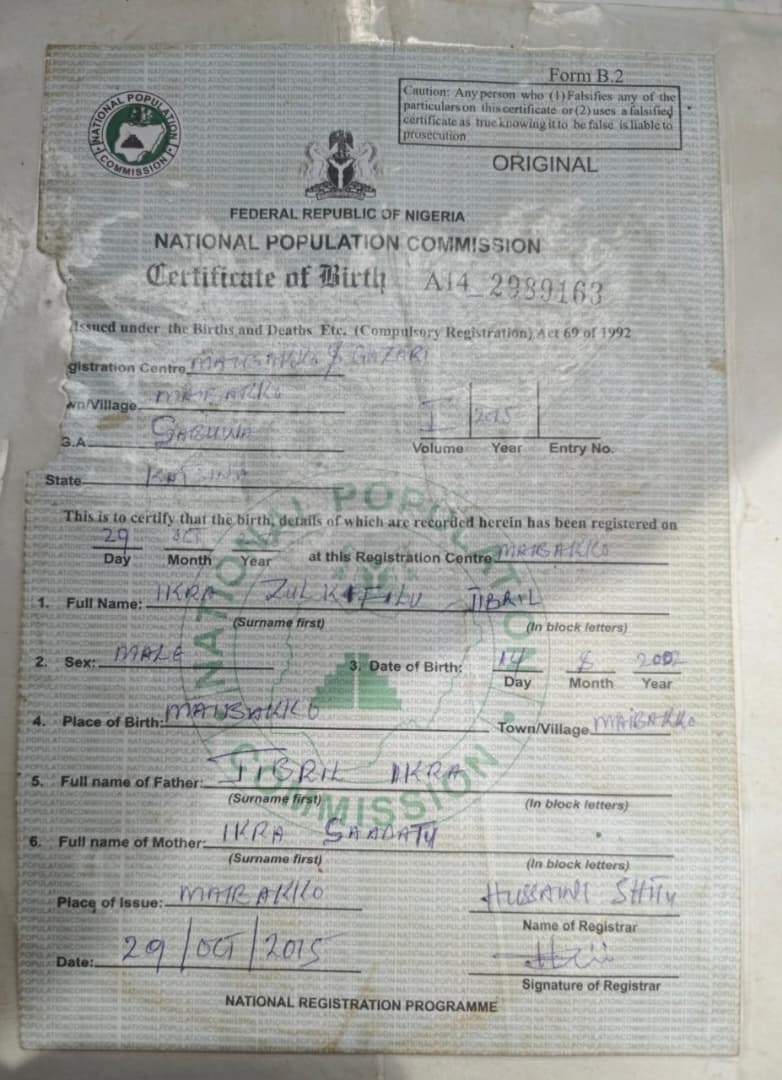 Form B.2
Caution: Any person who (1) Falsifies any of the
particulars on this certificate or (2) uses a falsified
certificate as true knowing it to be false is liable to
prosecution
NATIONAL POPULATION COMMISSION
ORIGINAL
FEDERAL REPUBLIC OF NIGERIA
NATIONAL POPULATION COMMISSION
Certificate of Birth A14_2989163
Issued under the Births and Deaths Etc. (Compulsory Registration) Act 69 of 1992
gistration Centre & GAZARI
wn/Village MAIBAKKO
G.A. SABUWA
I 2015
Volume Year Entry No.
State KATSINA
This is to certify that the birth, details of which are recorded herein has been registered on
29 OCT at this Registration Centre MAIBAKKO
Day Month Year
1. Full Name: IKRA ZULKIFILU JIBRIL
(Surname first) (In block letters)
2. Sex: MALE 3. Date of Birth: 14 8 2002
Day Month Year
4. Place of Birth: MAIBAKKO Town/Village MAIBAKKO
5. Full name of Father: JIBRIL IKRA
(Surname first) (In block letters)
6. Full name of Mother: IKRA SAADATU
(Surname first) (In block letters)
Place of Issue: MAIBAKKO HUSSAINI
Name of Registrar
Date: 29/OCT/2015
Signature of Registrar
NATIONAL REGISTRATION PROGRAMME
NATIONAL POPULATION COMMISSION